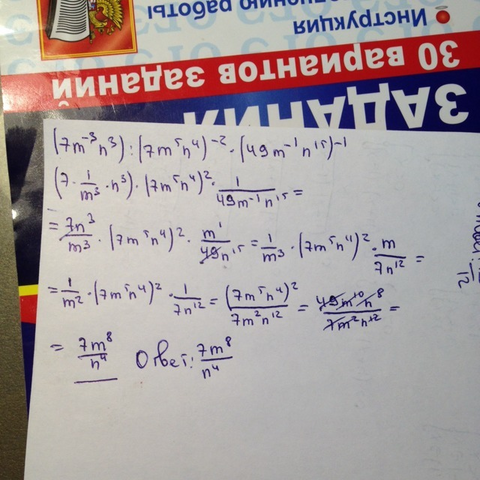 Инструкция
по выполнению работы
30 вариантов заданий
ЗАДАНИЯ
(7m⁻³n³):(7m⁵n⁴)⁻²·(49m⁻¹n¹⁵)⁻¹
(7·1/m³·n³)·(7m⁵n⁴)²·1/49m⁻¹n¹⁵=
=7n³/m³·(7m⁵n⁴)²·m¹/49n¹⁵=1/m³·(7m⁵n⁴)²·m/7n¹²=
=1/m²·(7m⁵n⁴)²·1/7n¹²=(7m⁵n⁴)²/7m²n¹²=49m¹⁰n⁸/7m²n¹²=
=7m⁸/n⁴ Ответ: 7m⁸/n⁴